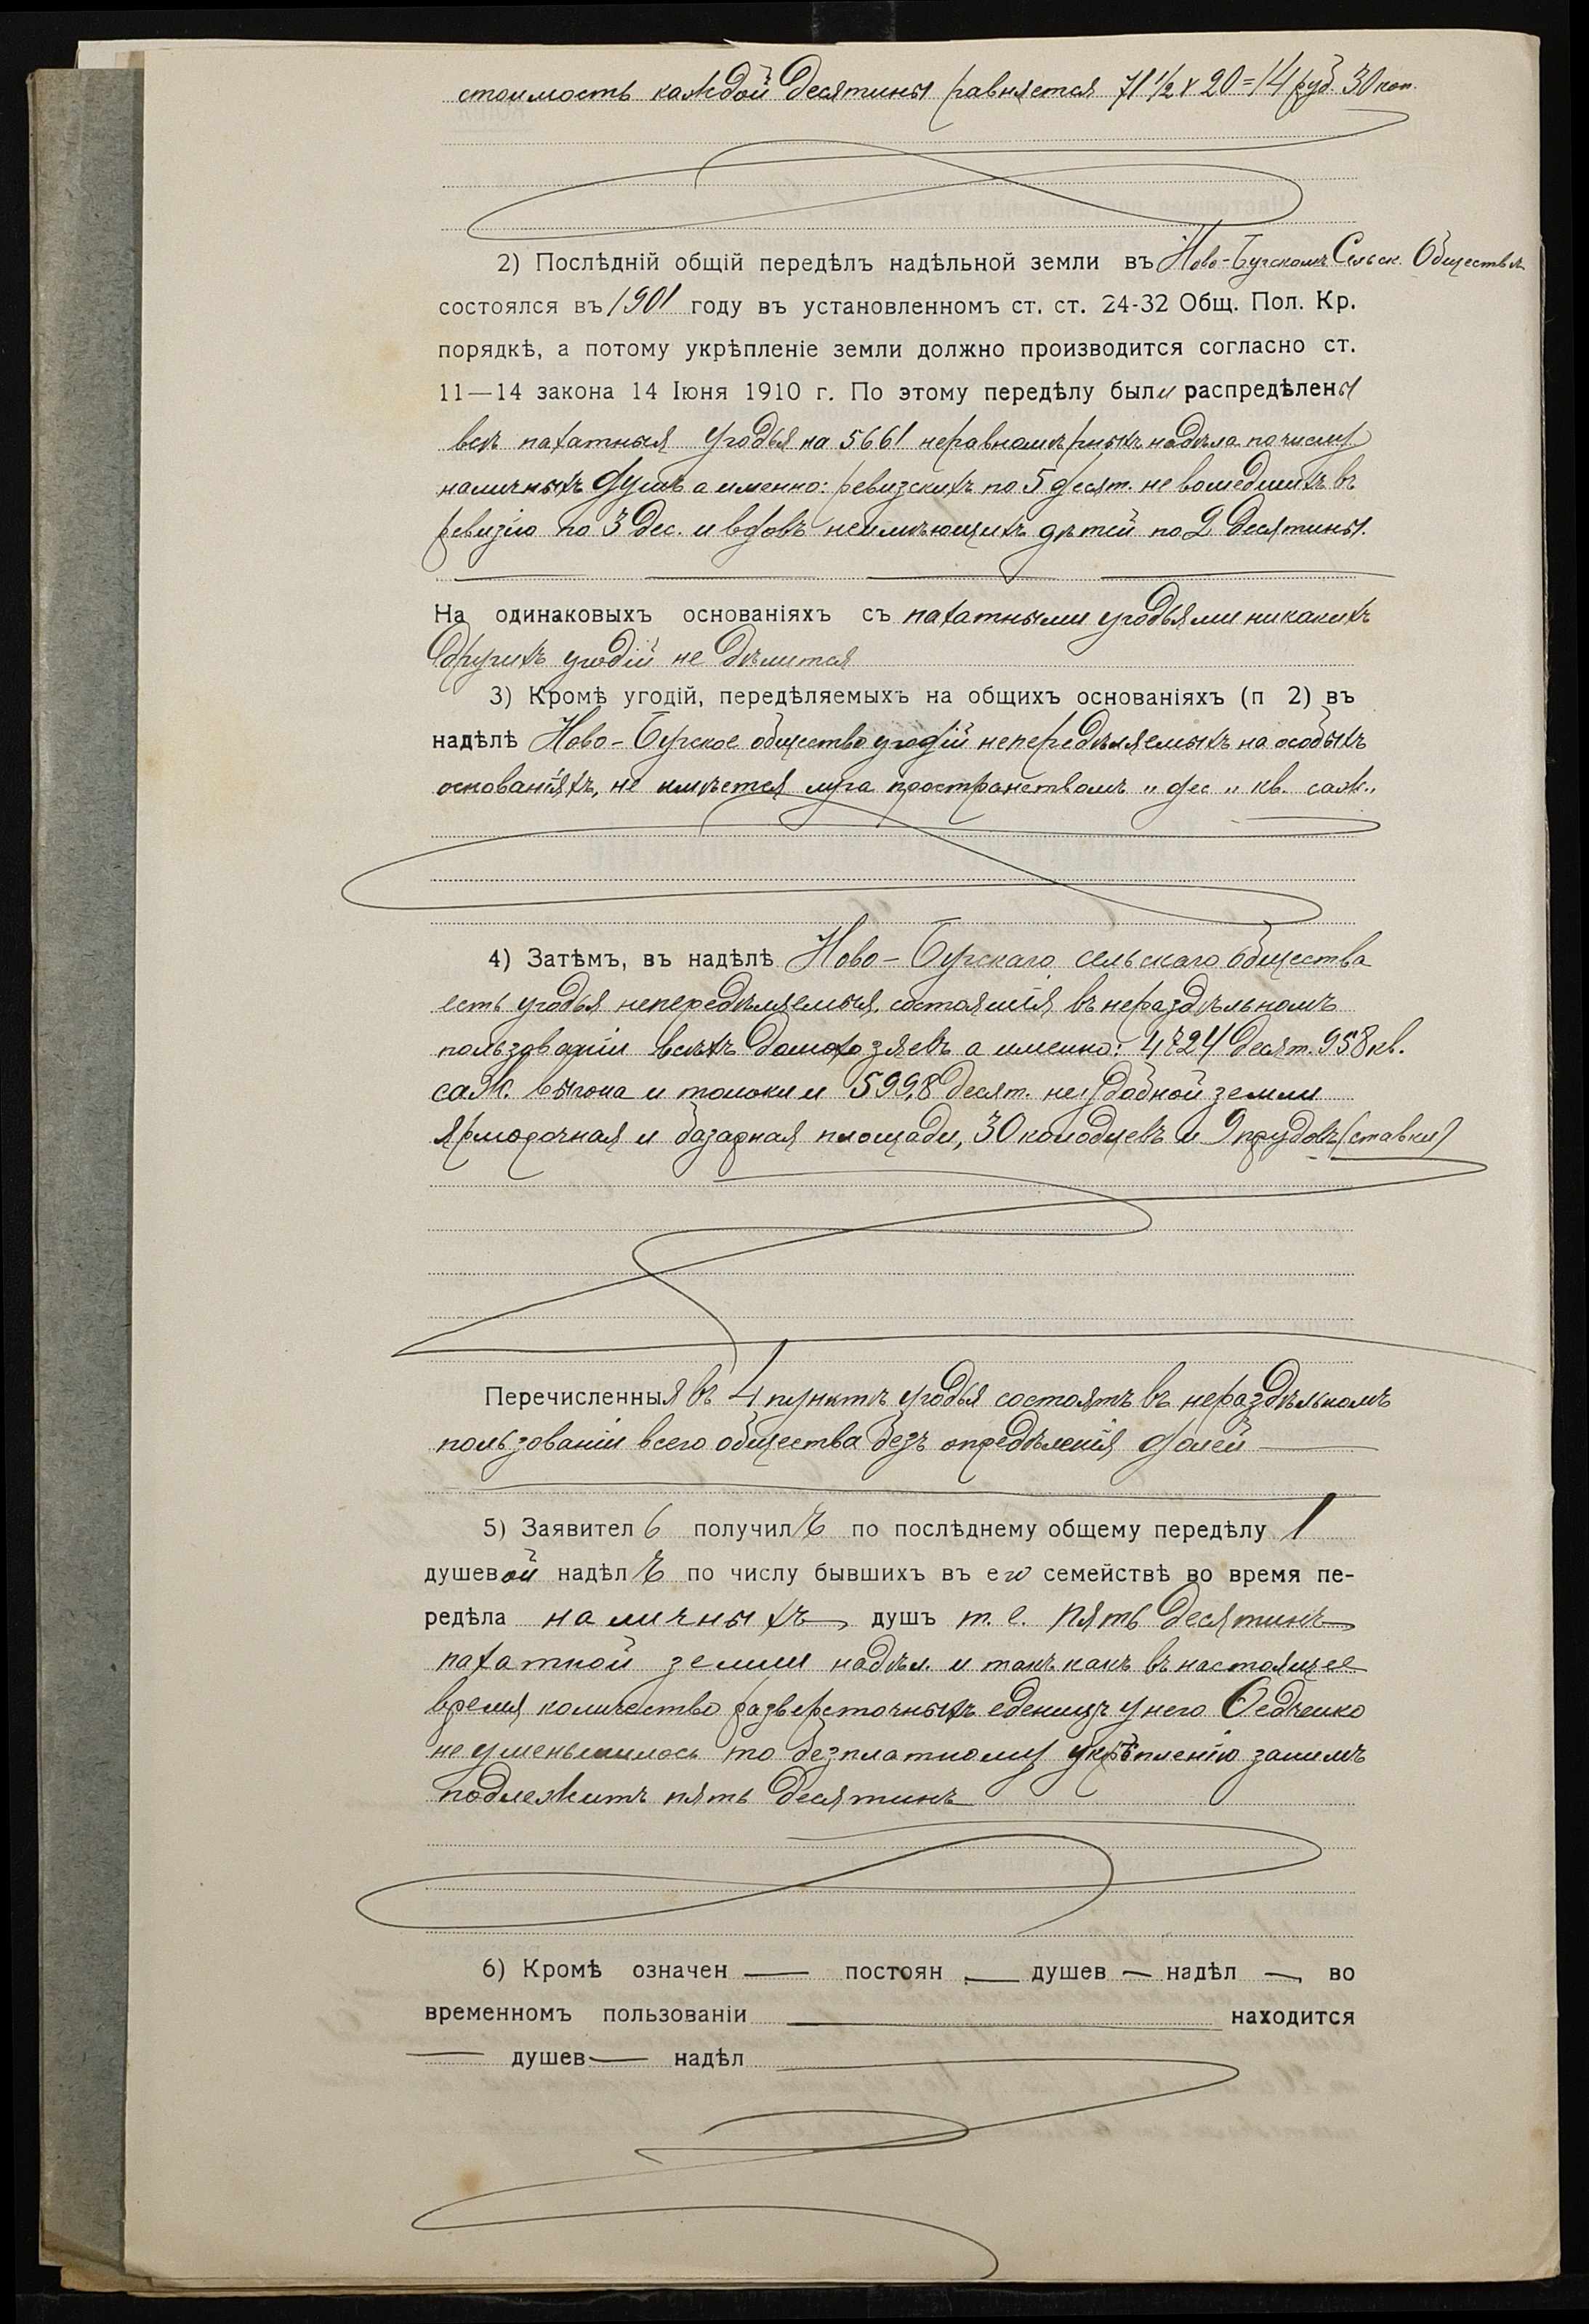 стоимость каждой десятины равняется 71 1/2 х 20=14 руб. 30 коп.
2) Послѣдній общій передѣлъ надѣльной земли въ Ново-Бугскомъ Сельск. Обществѣ
состоялся въ 1901 году въ установленномъ ст. ст. 24-32 Общ. Пол. Кр.
порядкѣ, а потому укрѣпленіе земли должно производится согласно ст.
11—14 закона 14 Іюня 1910 г. По этому передѣлу были распредѣлены
всѣ пахатныя угодья на 5661 неравномѣрныхъ надѣла по числу
наличныхъ душъ а именно: ревизскихъ по 5 десят. не вошедшихъ въ
ревизію по 3 дес. и вдовъ неимѣющихъ дѣтей по 2 десятины.
На одинаковыхъ основаніяхъ съ пахатными угодьями никакихъ
другихъ угодій не дѣлится
3) Кромѣ угодій, передѣляемыхъ на общихъ основаніяхъ (п 2) въ
надѣлѣ Ново-Бугское общество угодій непередѣляемыхъ на особыхъ
основаніяхъ, не имѣется луга пространствомъ „ дес „ кв. саж.„
4) Затѣмъ, въ надѣлѣ Ново-Бугскаго сельскаго общества
есть угодья непередѣляемыя, состоящія въ нераздѣльномъ
пользованіи всѣхъ домохозяевъ а именно: 4724 десят. 958 кв.
саж. выгона и толоки и 599,8 десят. неудобной земли
Ярморочная и базарная площади, 30 колодцевъ и 9 прудовъ (ставки)
Перечисленныя въ 4 пунктѣ угодья состоятъ въ нераздѣльномъ
пользованіи всего общества безъ опредѣленія долей
5) Заявител ь получил ъ по послѣднему общему передѣлу 1
душевой надѣл ъ по числу бывшихъ въ его семействѣ во время пе-
редѣла наличныхъ душъ т. е. пять десятинъ
пахатной земли надѣл. и такъ какъ въ настоящее
время количество разверсточныхъ еденицъ у него Ѳедченко
не уменьшилось то безплатному укрѣпленію за нимъ
подлежитъ пять десятинъ
6) Кромѣ означен — постоян — душев — надѣл —, во
временномъ пользованіи находится
— душев — надѣл